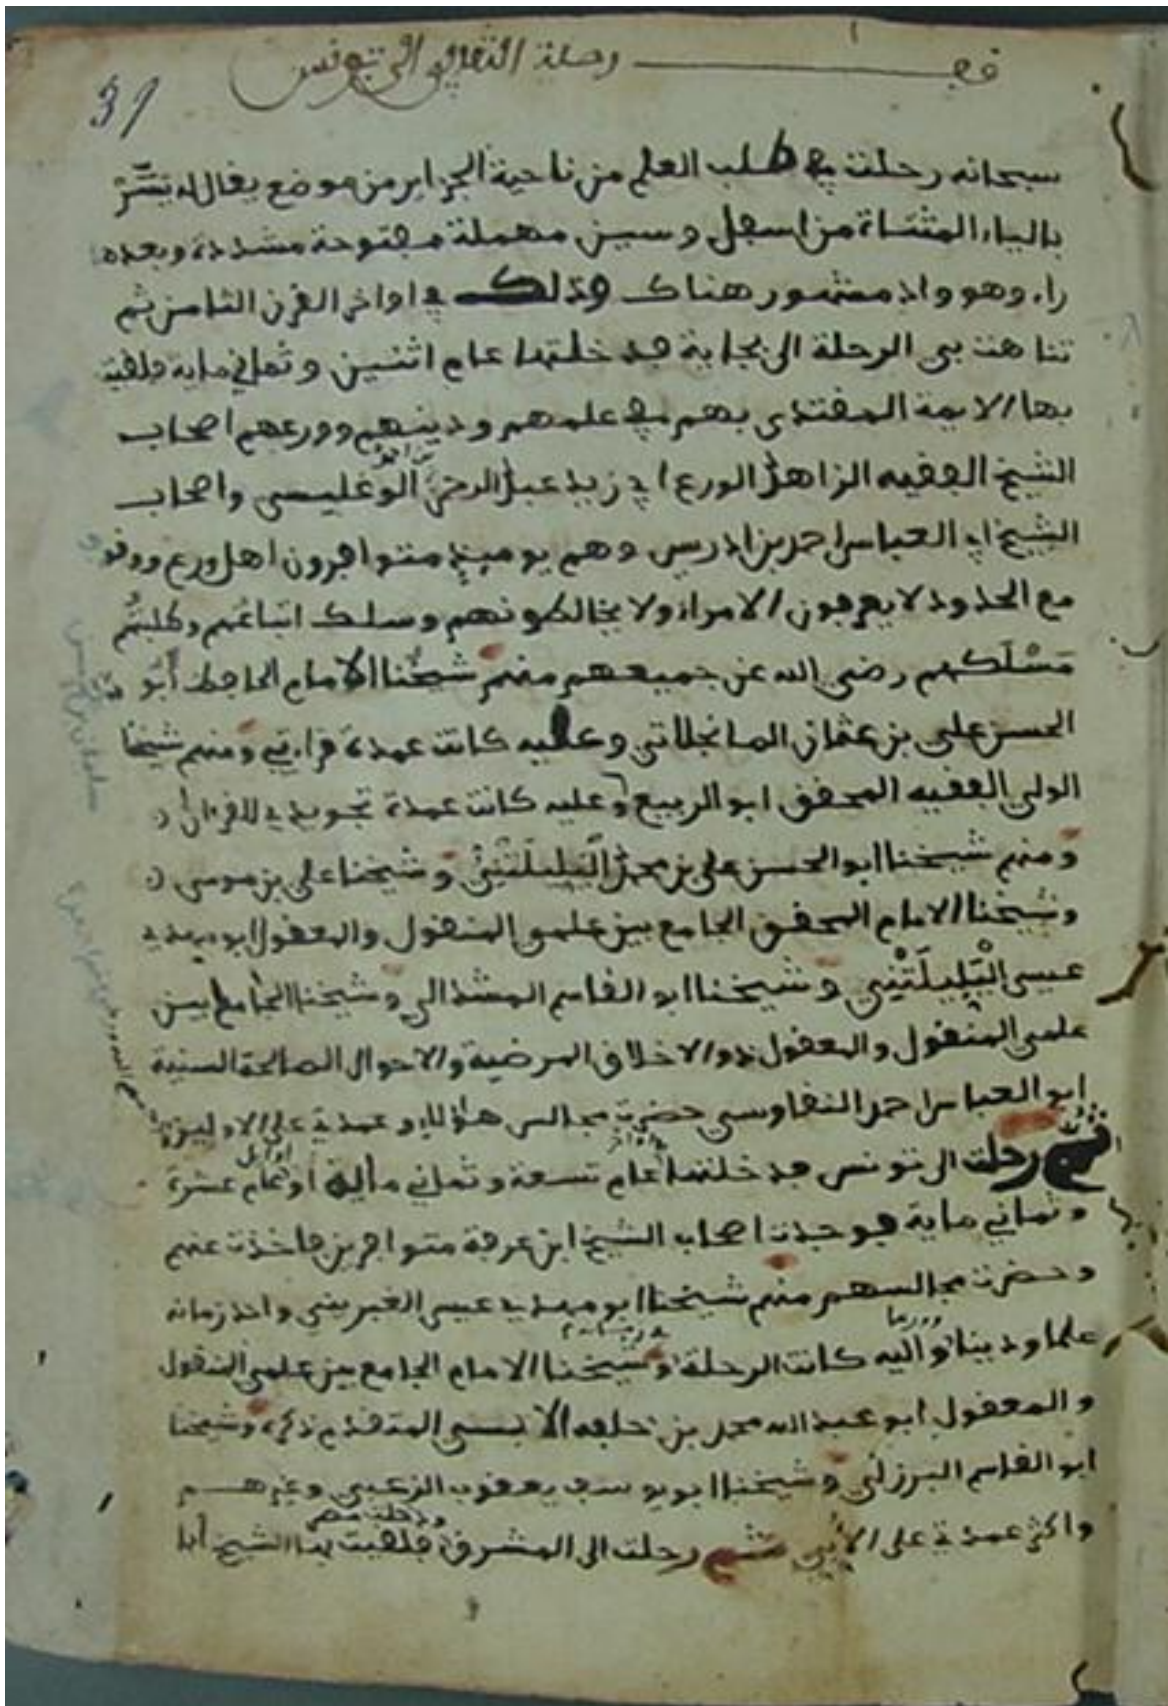 قف رحلة الثعالبي الى تونس
31
سبحانه رحلت في طلب العلم من ناحية الجزاير من موضع يقال له يسّر
بالياء المثناة من اسفل وسين مهملة مفتوحة مشددة وبعدها
راء وهو واد مشهور هناك وذلك في اواخر القرن الثامن ثم
تناهت بي الرحلة الى بجاية فدخلتها عام اثنين وثماني ماية فلقيت
بها الايمة المقتدى بهم في علمهم ودينهم وورعهم اصحاب
الشيخ الفقيه الزاهد الورع ابي زيد عبد الرحمن الوغليسي واصحاب
الشيخ ابي العباس احمد بن ادريس وهم يوميذ متوافرون اهل ورع ووقوف
مع الحدود لا يعرفون الامراء ولا يخالطونهم وسلك اتباعهم وطلبتهم
مَسْلَكهم رضي الله عن جميعهم منهم شيخنا الامام الحافظ أبو
الحسن علي بن عثمان المانجلاتي وعليه كانت عمدة قراءتي ومنهم شيخنا
الولي الفقيه المحقق ابو الربيع وعليه كانت عمدة تجويدي للقرءان
ومنهم شيخنا ابو الحسن علي بن محمد الْيَلِيلَتَنِي وشيخنا علي بن موسى
وشيخنا الامام المحقق الجامع بين علمي المنقول والمعقول ابو مهدي
عيسى الْيَلِيلَتْنِي وشيخنا ابو القاسم المشذالي وشيخنا الجامع بين
علمي المنقول والمعقول ذو الاخلاق المرضية والاحوال الصالحة السنية
ابو العباس احمد النقاوسي حضرت مجالس هؤلاء وعمدتي على الاولين
ثم رحلت الى تونس فدخلتها اواخر عام تسعة وثماني ماية او اوايل عام عشرة
وثماني ماية فوجدت اصحاب الشيخ ابن عرفة متوافرين فاخذت عنهم
وحضرت مجالسهم منهم شيخنا ابو مهدي عيسى الغبريني واحد زمانه
علما ودينا وورعا واليه كانت الرحلة وشيخنا الامام الجامع بين علمي المنقول
والمعقول ابو عبد الله محمد بن خلفه الابي المتقدم ذكره وشيخنا
ابو القاسم البرزلي وشيخنا ابو يوسف يعقوب الزغبي وغيرهم
واكثر عمدتي على الأبي ثم رحلت الى المشرق ودخلت مصر فلقيت بها الشيخ أبا